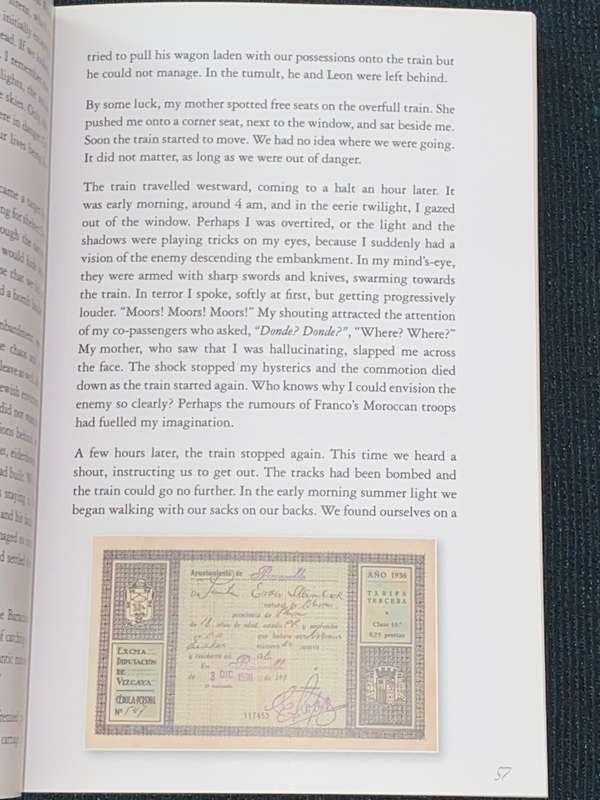 tried to pull his wagon laden with our possessions onto the train but
he could not manage. In the tumult, he and Leon were left behind.
By some luck, my mother spotted free seats on the overfull train. She
pushed me onto a corner seat, next to the window, and sat beside me.
Soon the train started to move. We had no idea where we were going.
It did not matter, as long as we were out of danger.
The train travelled westward, coming to a halt an hour later. It
was early morning, around 4 am, and in the eerie twilight, I gazed
out of the window. Perhaps I was overtired, or the light and the
shadows were playing tricks on my eyes, because I suddenly had a
vision of the enemy descending the embankment. In my mind's-eye,
they were armed with sharp swords and knives, swarming towards
the train. In terror I spoke, softly at first, but getting progressively
louder. “Moors! Moors! Moors!” My shouting attracted the attention
of my co-passengers who asked, “Donde? Donde?”, “Where? Where?”
My mother, who saw that I was hallucinating, slapped me across
the face. The shock stopped my hysterics and the commotion died
down as the train started again. Who knows why I could envision the
enemy so clearly? Perhaps the rumours of Franco's Moroccan troops
had fuelled my imagination.
A few hours later, the train stopped again. This time we heard a
shout, instructing us to get out. The tracks had been bombed and
the train could go no further. In the early morning summer light we
began walking with our sacks on our backs. We found ourselves on a
Ayuntamiento de
AÑO 1936
TARIFA
TERCERA
Clase 13.ª
EXCMA.
DIPUTACIÓN
DE
VIZCAYA
CÉDULA PERSONAL
Nº
provincia de
de 18 años de edad, estado
En
3 DIC 1936
117453
57